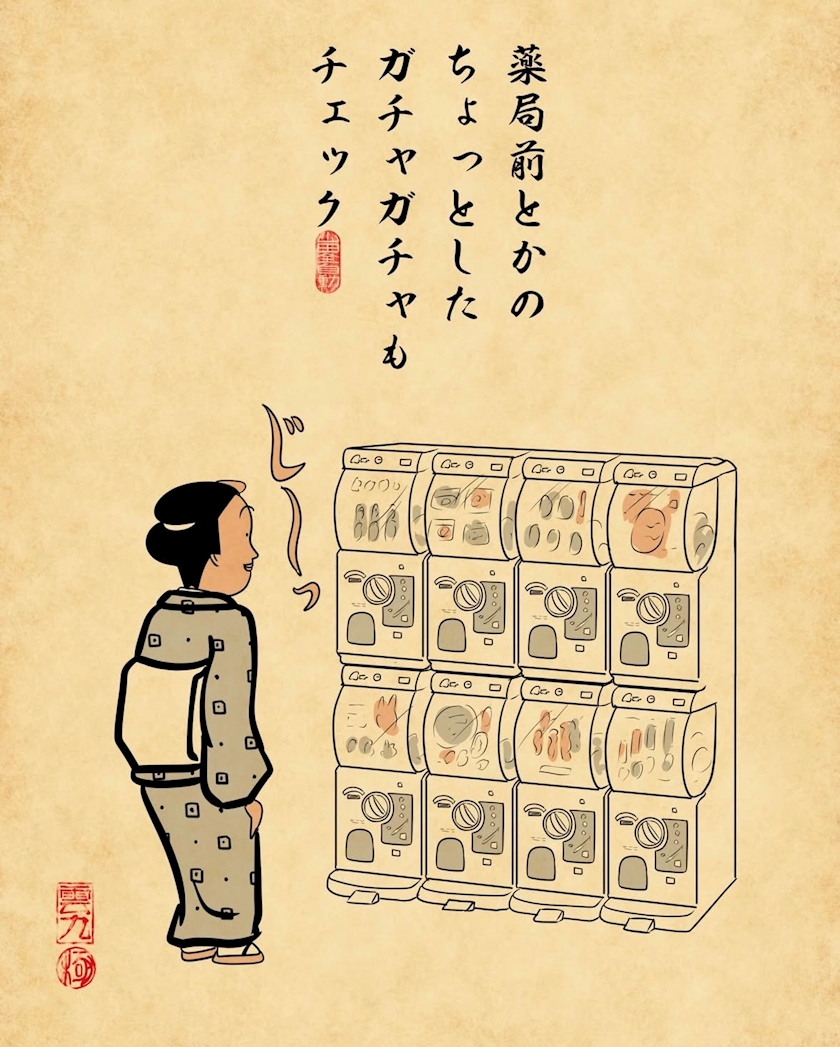 薬局前とかの
ちょっとした
ガチャガチャも
チェック
じーっ